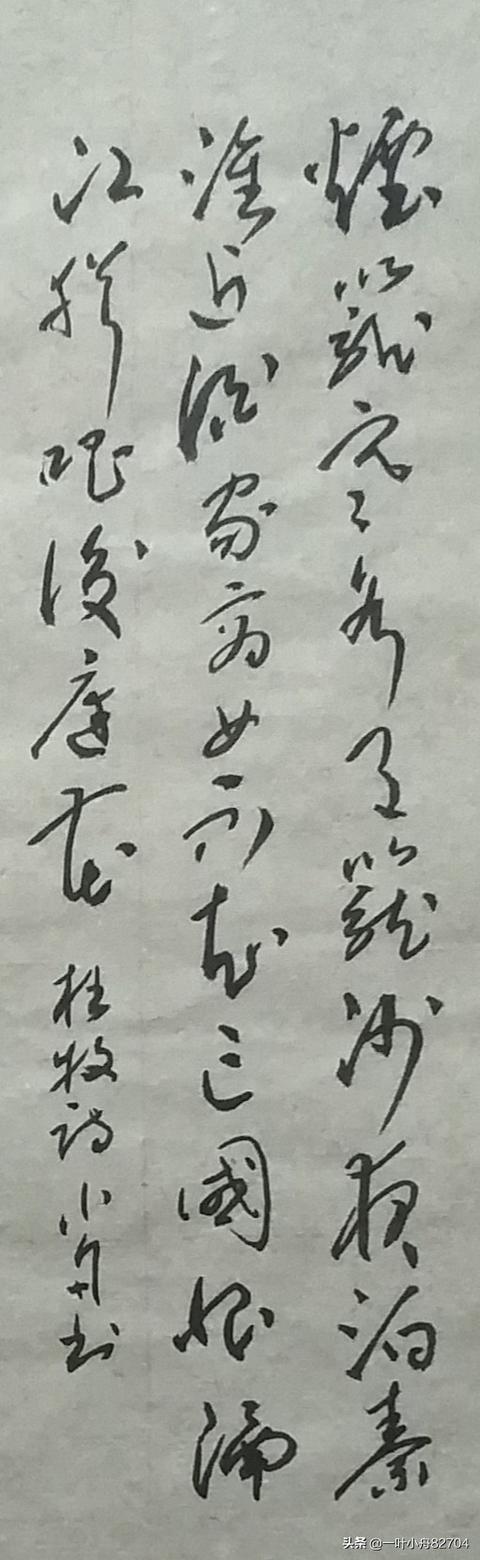 煙籠寒水月籠沙夜泊秦
淮近酒家商女不知亡國恨隔
江猶唱後庭花 杜牧詩小舟书
头条 @一叶小舟82704